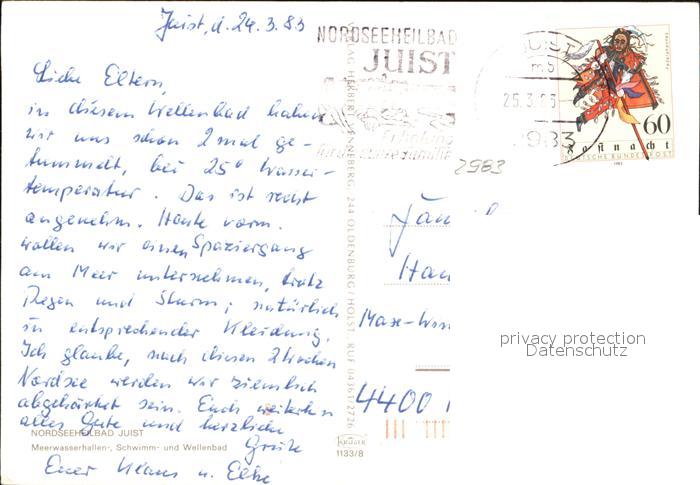 Juist, d. 24.3.83
Liebe Eltern,
in diesem Wellenbad haben
wir uns schon 2 mal ge-
tummelt, bei 25° Wasser-
temperatur. Das ist recht
angenehm. Heute vorm.
wollen wir einen Spaziergang
am Meer unternehmen, trotz
Regen und Sturm; natürlich
in entsprechender Kleidung.
Ich glaube, nach diesen 2 Wochen
Nordsee werden wir ziemlich
abgehärtet sein. Euch weiterhin
alles Gute und herzliche
Grüße
Euer Klaus u. Elke
NORDSEEHEILBAD JUIST
Meerwasserhallen-, Schwimm- und Wellenbad
NORDSEEHEILBAD
JUIST
Erholung
JUIST
25.3.
2983
60
Fastnacht
DEUTSCHE BUNDESPOST
1983
2983
244 OLDENBURG/HOLST · RUF 04361/2726
KRÜGER
1133/8
Han
4400
privacy protection
Datenschutz